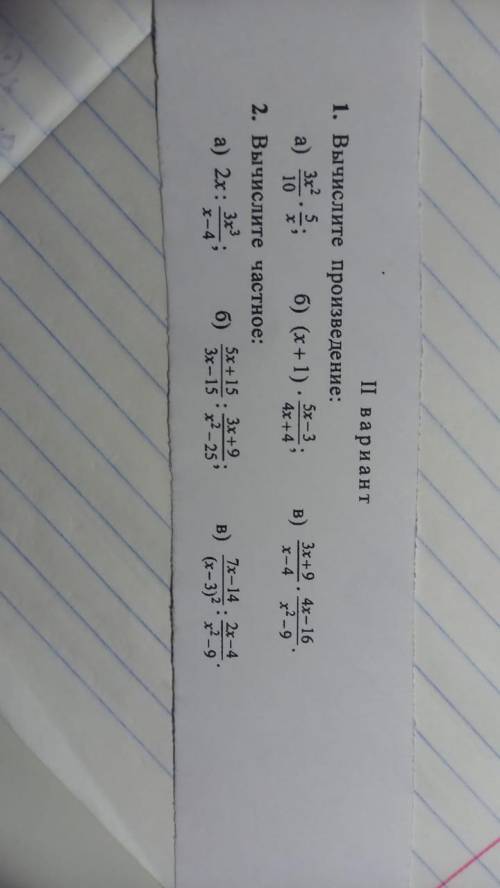 II вариант
1. Вычислите произведение:
а) 3x²/10 · 5/x; б) (x + 1) · (5x−3)/(4x+4); в) (3x+9)/(x−4) · (4x−16)/(x²−9).
2. Вычислите частное:
а) 2x : 3x³/(x−4); б) (5x+15)/(3x−15) : (3x+9)/(x²−25); в) (7x−14)/(x−3)² : (2x−4)/(x²−9).